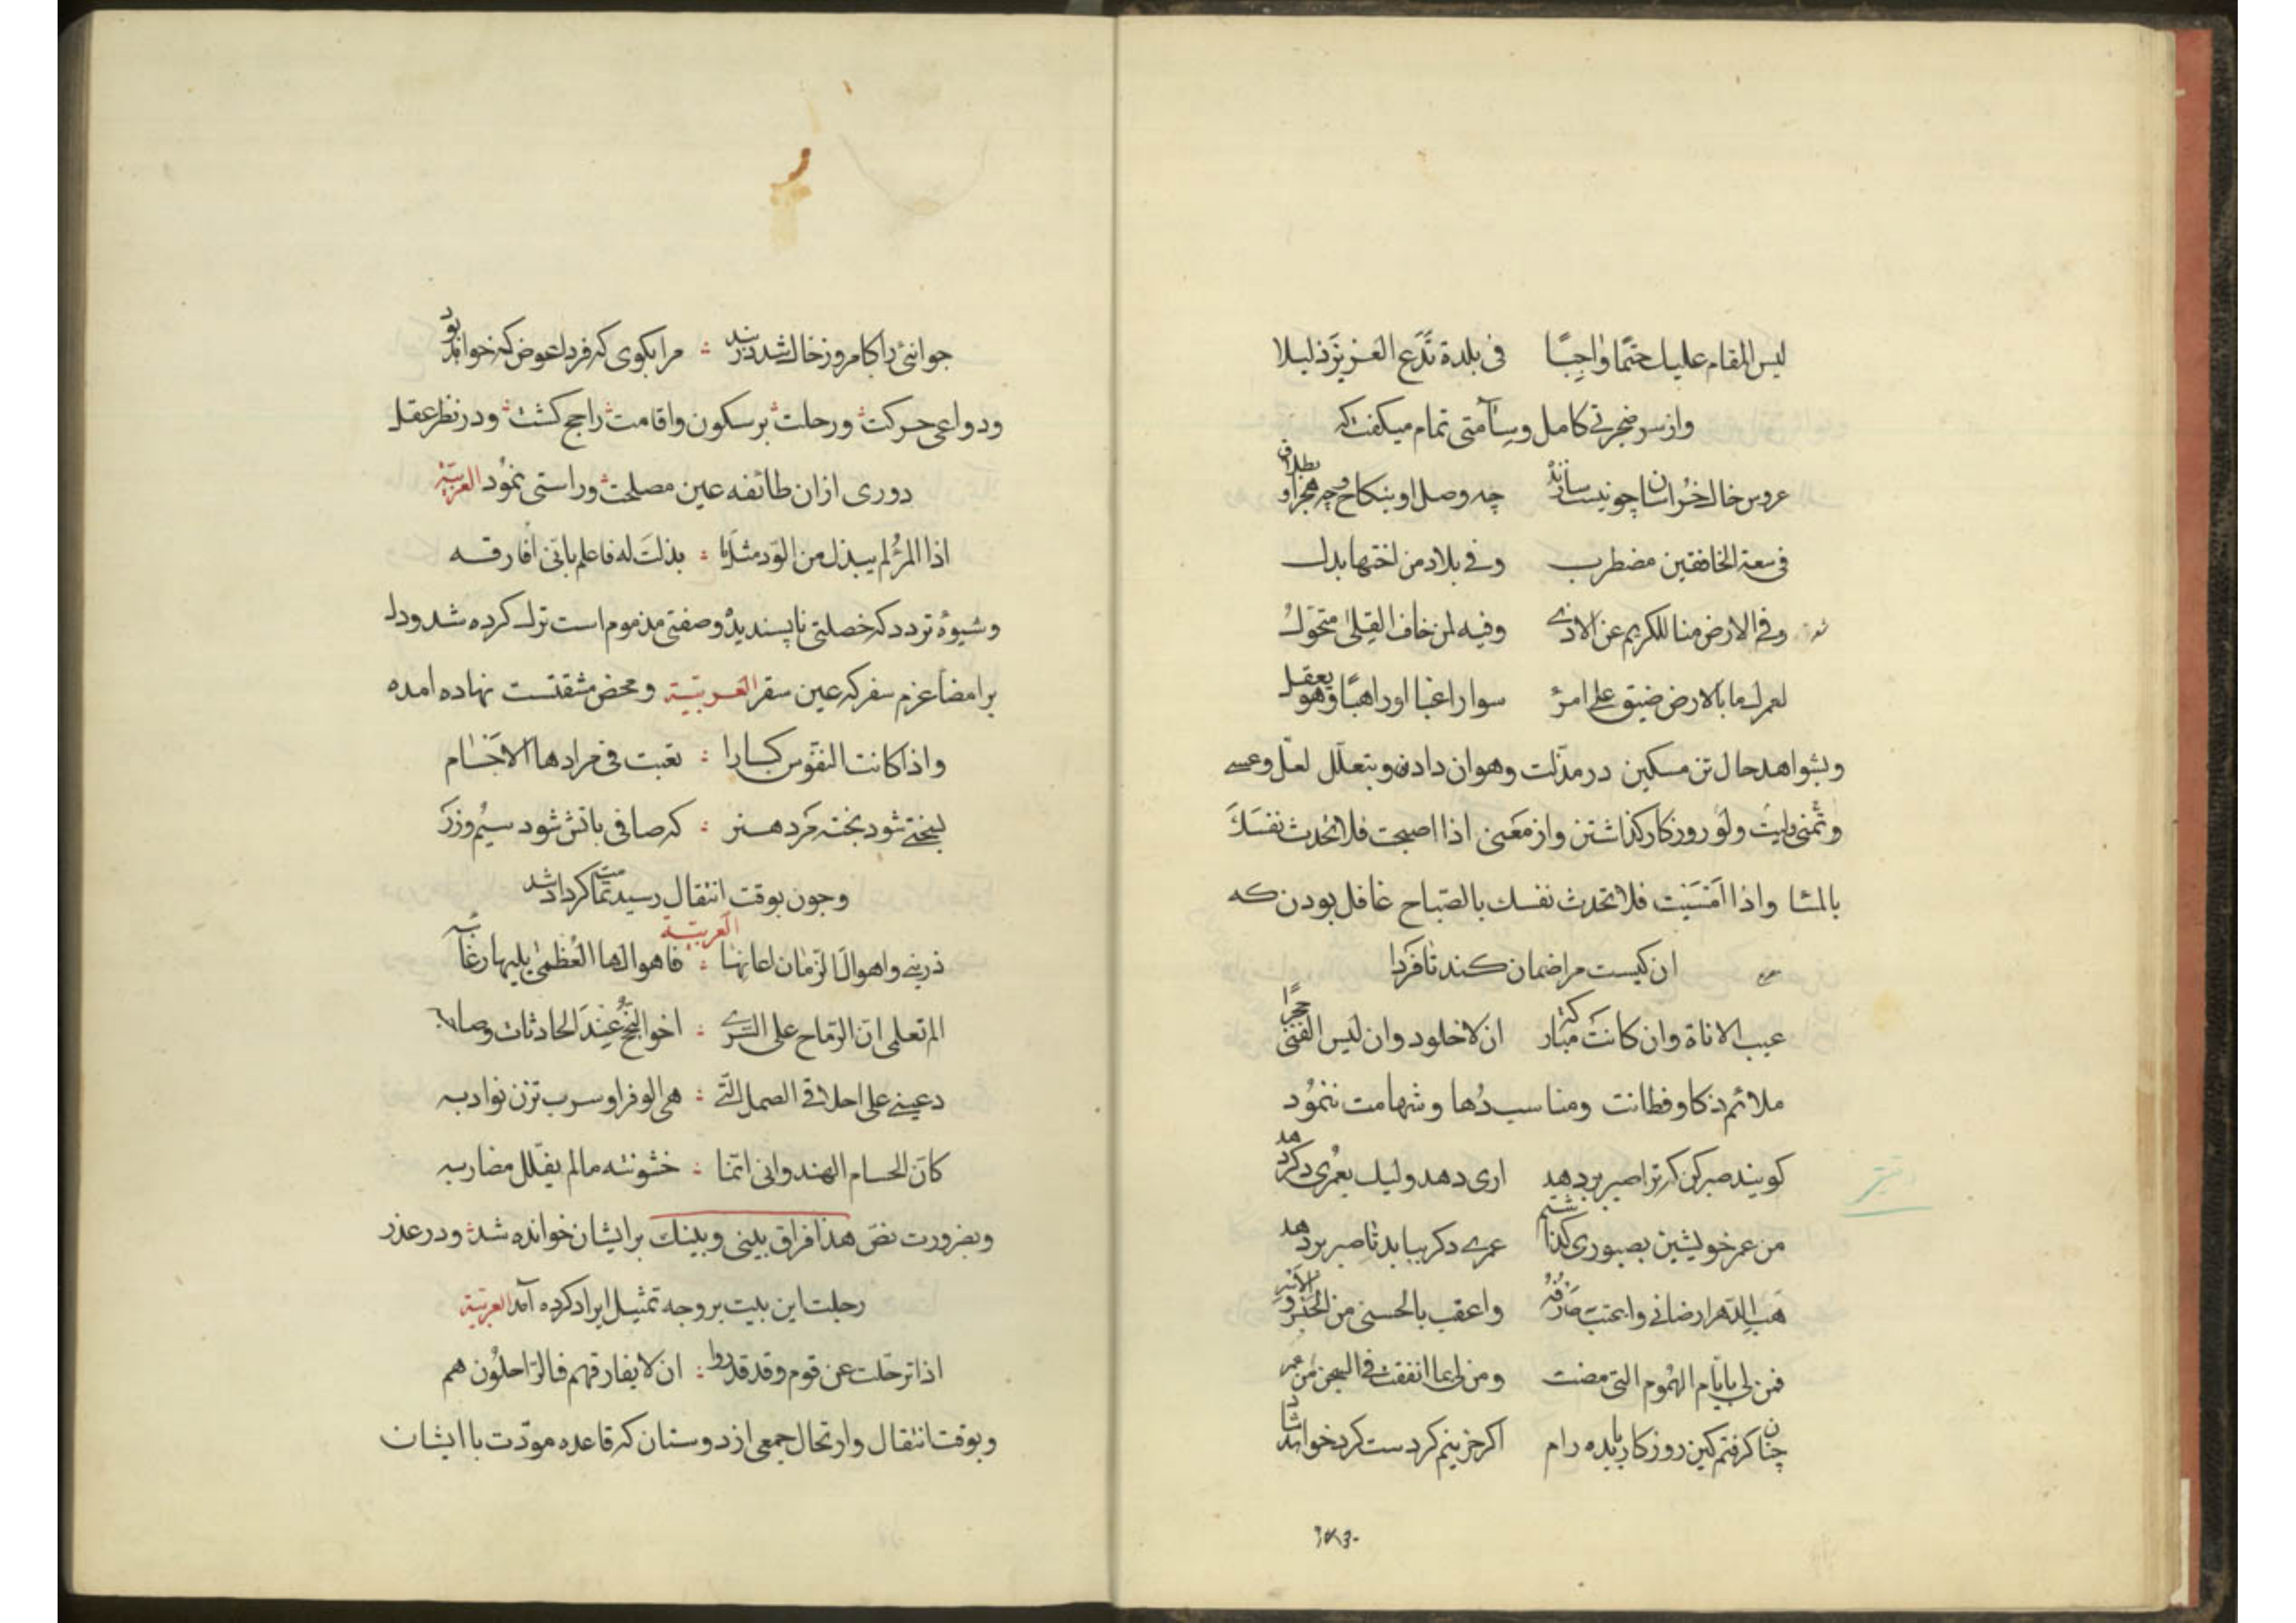 ليس المقام عليك حتمًا واجبًا في بلدة تدع العزيز ذليلا
واز سر ضجرتی کامل وسآمتی تمام میکفت که
عروس خاك خراسان چو نیست سازنده چه وصل او بنکاح وچه هجر او بطلاق
في سعة الخافقين مضطرب وفي بلاد من اختها بدل
وفي الارض منا للكريم عن الاذى وفيه لمن خاف القلى متحول
لعمرك ما بالارض ضيق على امرئ سوا راغبا او راهبًا وهو يعقل
وبشواهد حال تن مسکین در مذلت وهوان دادن وبتعلّل لعلّ وعسى
وتمنى ليت ولو روزکار کذاشتن واز معنی اذا اصبحت فلا تحدث نفسك
بالمسا واذا امسيت فلا تحدث نفسك بالصباح غافل بودن که
ان کیست مرا ضمان کند تا فردا
عيب الاناة وان كانت مباركة ان لا خلود وان ليس الفتى حجرًا
ملائم ذکا وفطانت ومناسب دها وشهامت ننمود
کویند صبر کن که ترا صبر بر دهد اری دهد ولیك بعمری دکر دهد
من عمر خویشتن بصبوری کذاشتم عمری دکر بباید تا صبر بر دهد
هب الدهر ارضاني واعتب صرفه واعقب بالحسنى من الحبس والاسر
فمن لي بايّام الهموم التي مضت ومن لي بما انفقت في السجن من عمر
چنان کرفتم کین روزکار بدرام اکر خزینم کردست کرد خواهد شاد
جوانئ را کامروز خاك شد در بند : مرا بکوی که فردا عوض که خواهد بود
ودواعی حرکت ورحلت بر سکون واقامت راجح کشت ودر نظر عقل
دوری ازان طائفه عین مصلحت وراستی نمود العربية
اذا المرء لم يبذل من الود مثل ما : بذلت له فاعلم باني افارقه
وشیوهٔ تردد که خصلتی ناپسندیده وصفتی مذموم است ترك کرده شد ودل
بر امضا عزم سفر که عین سقر العربية ومحض مشقتست نهاده امده
واذا كانت النفوس كبارا : تعبت في مرادها الاجسام
بسختی شود پخته مرد هنر : که صافی باتش شود سیم وزر
وچون بوقت انتقال رسید تمامت کرد اشد
العربية
ذريني واهوال الزمان اعانها : فاهوالها العظمى يليها رغائبه
الم تعلمي ان الرماح على السرى : اخو النجح عند الحادثات وصاحبه
دعيني على اخلاقي الصمل التي : هي الوفر او سرب ترن نوادبه
كان الحسام الهندواني انما : خشونته ما لم يفلل مضاربه
وبضرورت نص هذا فراق بيني وبينك بر ایشان خوانده شد ودر عذر
رحلت این بیت بر وجه تمثیل ایراد کرده آمد العربية
اذا ترحلت عن قوم وقد قدروا : ان لا يفارقهم فالراحلون هم
وبوقت انتقال وارتحال جمعی از دوستان که قاعده مودّت با ایشان